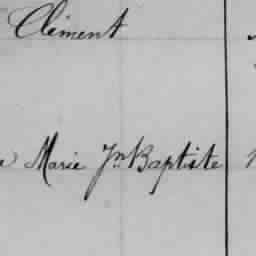 Clément
e Marie Jn Baptiste